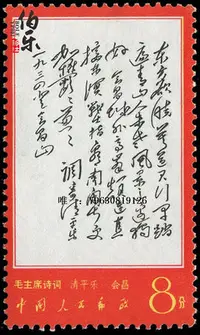 伯乐
东方欲晓莫道君行早踏
遍青山人未老风景这边独
好会昌城外高峰颠连直
接东溟战士指看南粤更
加郁郁葱葱 调寄清平乐
一九三四年会昌山
毛主席诗词 清平乐 会昌
中国人民邮政
8分